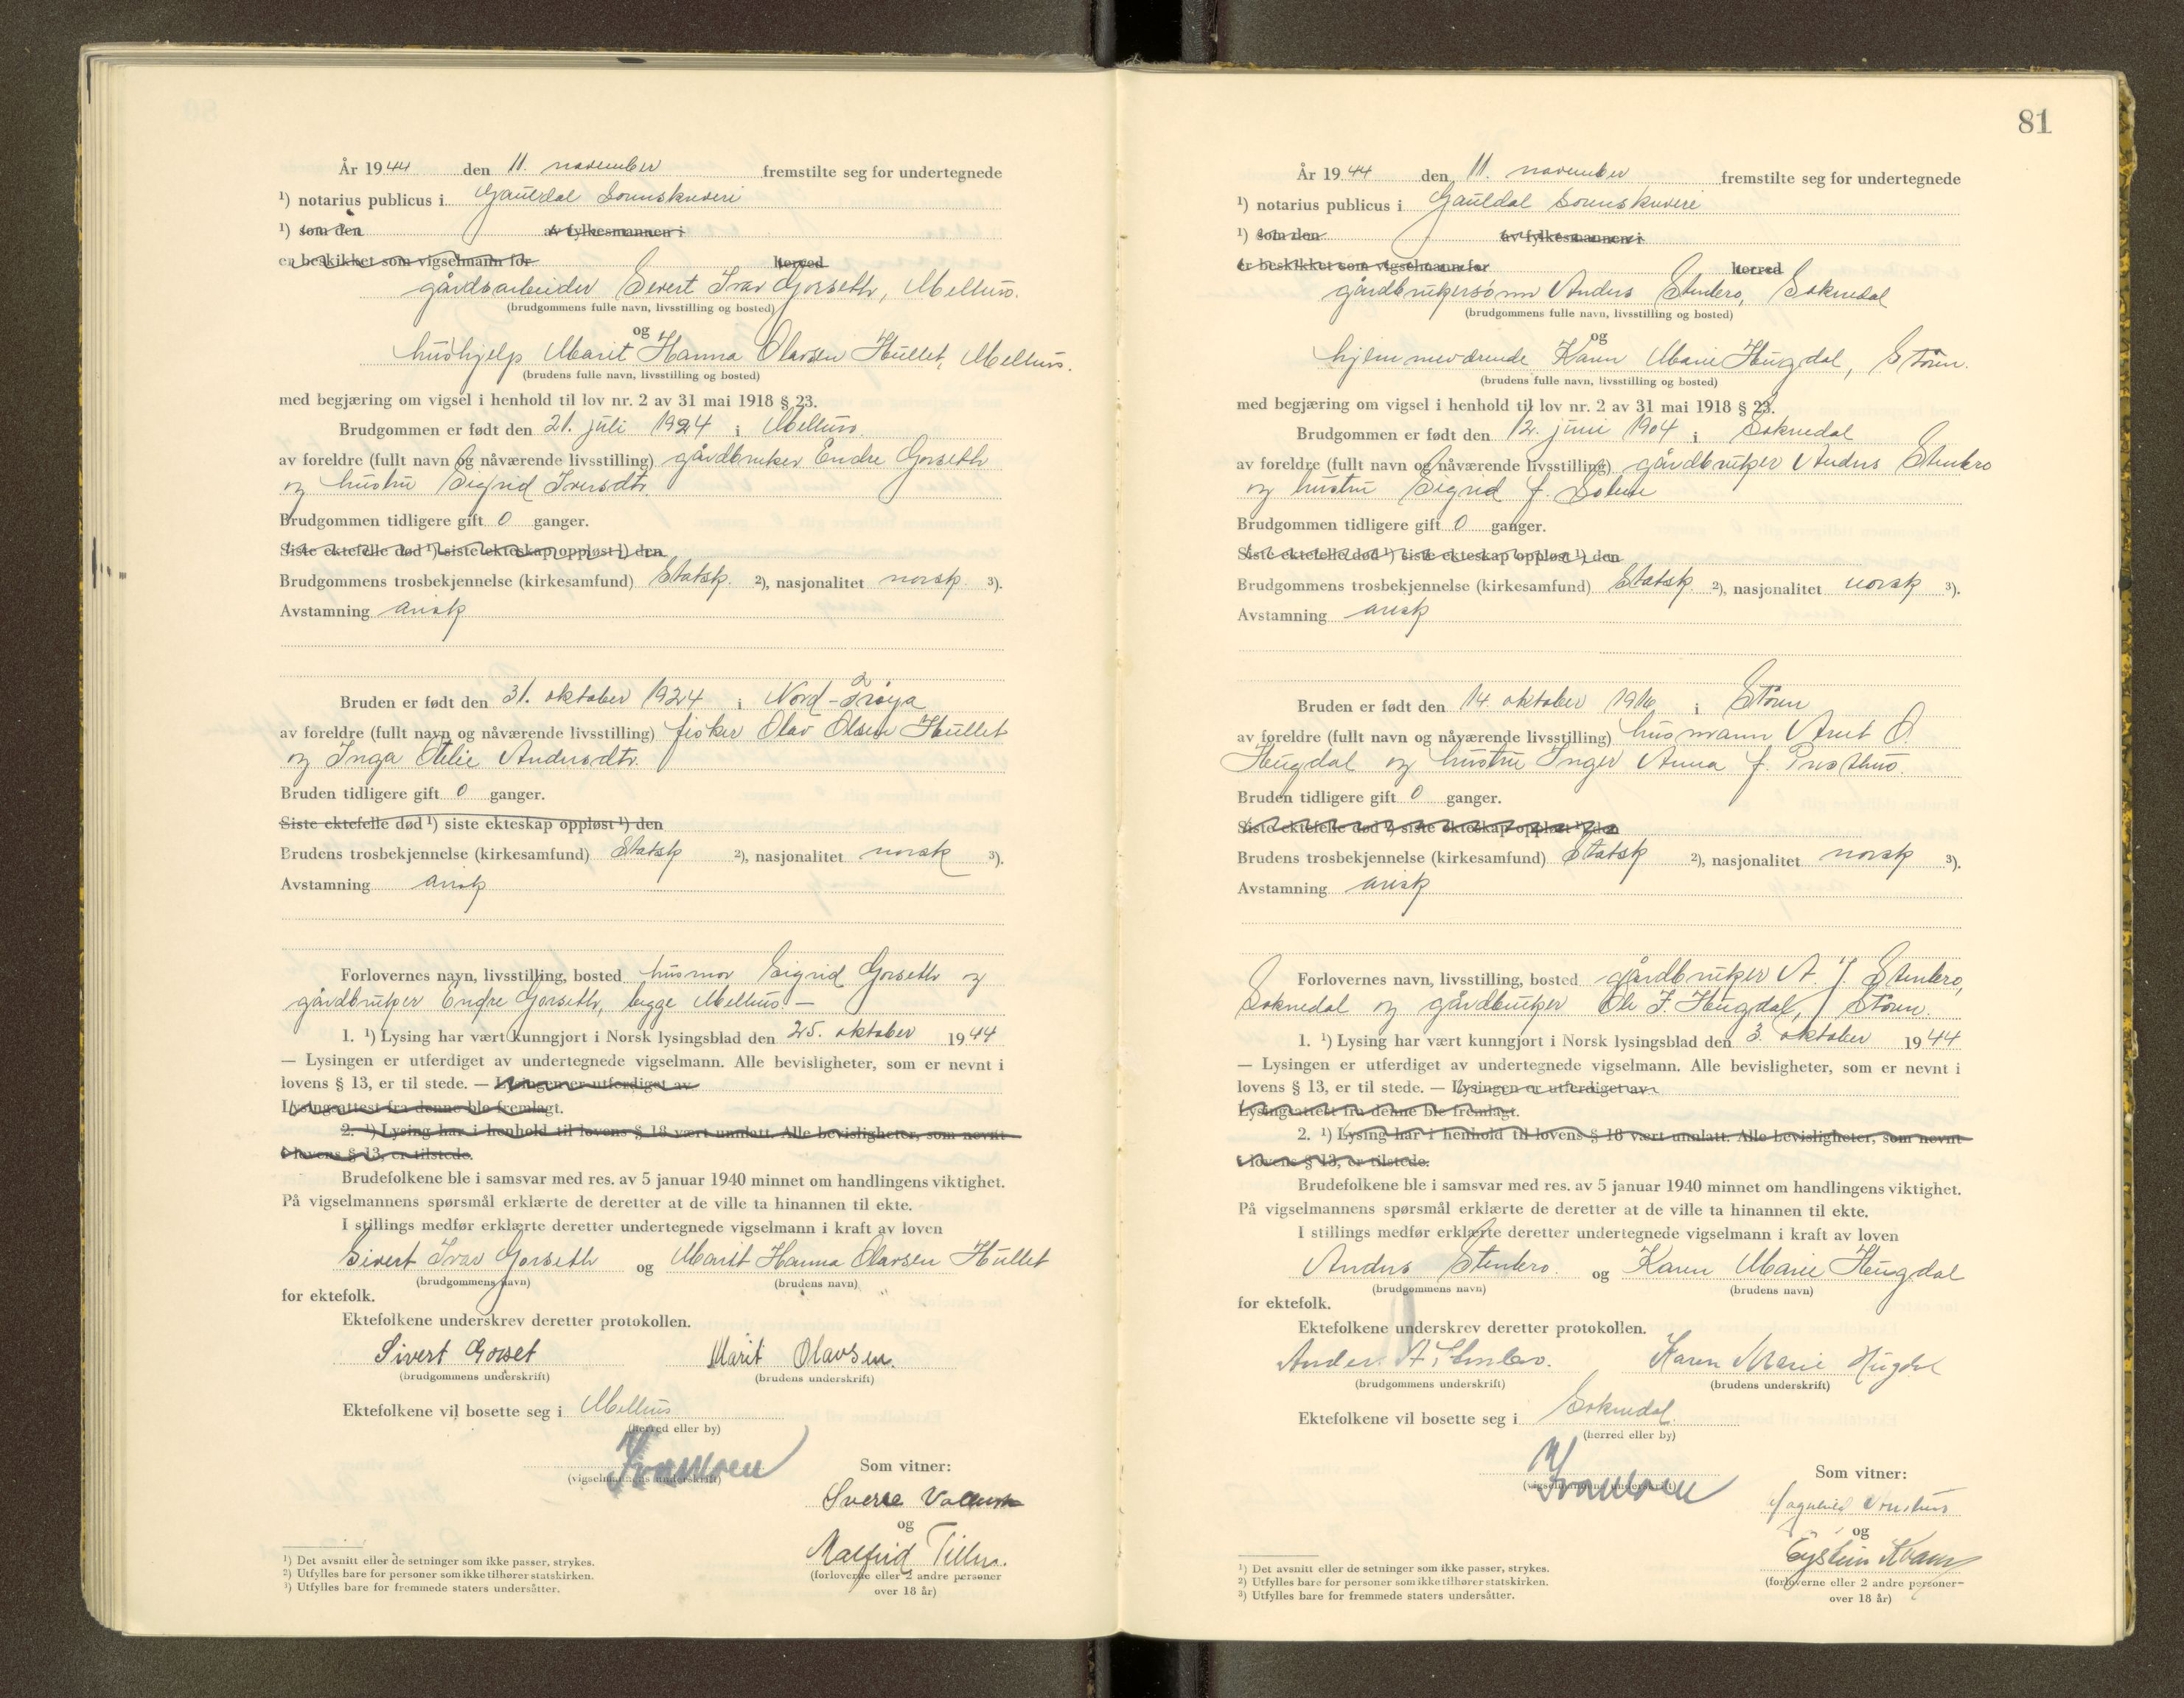 År 1944 den 11. november fremstilte seg for undertegnede
¹) notarius publicus i Gauldal Sorenskriveri
¹) som den av fylkesmannen i
er beskikket som vigselmann for herred
gårdsarbeider Sivert Ivar Gorseth, Melhus.
(brudgommens fulle navn, livsstilling og bosted)
og
hushjelp Marit Hanna Olavsen Hullet, Melhus.
(brudens fulle navn, livsstilling og bosted)
med begjæring om vigsel i henhold til lov nr. 2 av 31 mai 1918 § 23.
Brudgommen er født den 21. juli 1924 i Melhus
av foreldre (fullt navn og nåværende livsstilling) gårdbruker Endre Gorseth
og hustru Sigrid Iversdtr.
Brudgommen tidligere gift 0 ganger.
Siste ektefelle død ¹) siste ekteskap oppløst ¹) den
Brudgommens trosbekjennelse (kirkesamfund) Statsk. ²), nasjonalitet norsk. ³).
Avstamning arisk
Bruden er født den 31. oktober 1924 i Nord-Frøya
av foreldre (fullt navn og nåværende livsstilling) fisker Olav Olsen Hullet
og Inga Otelie Andersdtr.
Bruden tidligere gift 0 ganger.
Siste ektefelle død ¹) siste ekteskap oppløst ¹) den
Brudens trosbekjennelse (kirkesamfund) Statsk ²), nasjonalitet norsk ³).
Avstamning arisk
Forlovernes navn, livsstilling, bosted husmor Sigrid Gorseth og
gårdbruker Endre Gorseth, begge Melhus –
1. ¹) Lysing har vært kunngjort i Norsk lysingsblad den 25. oktober 1944
— Lysingen er utferdiget av undertegnede vigselmann. Alle bevisligheter, som er nevnt i
lovens § 13, er til stede. — Lysingen er utferdiget av
Lysingsattest fra denne ble fremlagt.
2. ¹) Lysing har i henhold til lovens § 18 vært unnlatt. Alle bevisligheter, som nevnt
i lovens § 13, er tilstede.
Brudefolkene ble i samsvar med res. av 5 januar 1940 minnet om handlingens viktighet.
På vigselmannens spørsmål erklærte de deretter at de ville ta hinannen til ekte.
I stillings medfør erklærte deretter undertegnede vigselmann i kraft av loven
Sivert Ivar Gorseth og Marit Hanna Olavsen Hullet
(brudgommens navn) (brudens navn)
for ektefolk.
Ektefolkene underskrev deretter protokollen.
Sivert Gorset Marit Olavsen.
(brudgommens underskrift) (brudens underskrift)
Ektefolkene vil bosette seg i Melhus
(herred eller by)
(vigselmannens underskrift)
Som vitner:
Sverre
og
Malfrid
(forloverne eller 2 andre personer
over 18 år)
¹) Det avsnitt eller de setninger som ikke passer, strykes.
²) Utfylles bare for personer som ikke tilhører statskirken.
³) Utfylles bare for fremmede staters undersåtter.
81
År 1944 den 11. november fremstilte seg for undertegnede
¹) notarius publicus i Gauldal Sorenskriveri
¹) som den av fylkesmannen i
er beskikket som vigselmann for herred
gårdbrukersønn Anders Stenbro, Soknedal
(brudgommens fulle navn, livsstilling og bosted)
og
hjemmeværende Karen Marie Hugdal, Støren.
(brudens fulle navn, livsstilling og bosted)
med begjæring om vigsel i henhold til lov nr. 2 av 31 mai 1918 § 23.
Brudgommen er født den 12. juni 1904 i Soknedal
av foreldre (fullt navn og nåværende livsstilling) gårdbruker Anders Stenbro
og hustru Sigrid f. Solem
Brudgommen tidligere gift 0 ganger.
Siste ektefelle død ¹) siste ekteskap oppløst ¹) den
Brudgommens trosbekjennelse (kirkesamfund) Statsk. ²), nasjonalitet norsk ³).
Avstamning arisk
Bruden er født den 14 oktober 1916 i Støren
av foreldre (fullt navn og nåværende livsstilling) husmann Arnt O.
Hugdal og hustru Inger Anna f. Presthus.
Bruden tidligere gift 0 ganger.
Siste ektefelle død ¹) siste ekteskap oppløst ¹) den
Brudens trosbekjennelse (kirkesamfund) Statsk ²), nasjonalitet norsk ³).
Avstamning arisk
Forlovernes navn, livsstilling, bosted gårdbruker A. J. Stenbro,
Soknedal og gårdbruker Ole J. Hugdal, Støren.
1. ¹) Lysing har vært kunngjort i Norsk lysingsblad den 3. oktober 1944
— Lysingen er utferdiget av undertegnede vigselmann. Alle bevisligheter, som er nevnt i
lovens § 13, er til stede. — Lysingen er utferdiget av
Lysingsattest fra denne ble fremlagt.
2. ¹) Lysing har i henhold til lovens § 18 vært unnlatt. Alle bevisligheter, som nevnt
i lovens § 13, er tilstede.
Brudefolkene ble i samsvar med res. av 5 januar 1940 minnet om handlingens viktighet.
På vigselmannens spørsmål erklærte de deretter at de ville ta hinannen til ekte.
I stillings medfør erklærte deretter undertegnede vigselmann i kraft av loven
Anders Stenbro. og Karen Marie Hugdal
(brudgommens navn) (brudens navn)
for ektefolk.
Ektefolkene underskrev deretter protokollen.
Anders A Stenbro. Karen Marie Hugdal
(brudgommens underskrift) (brudens underskrift)
Ektefolkene vil bosette seg i Soknedal.
(herred eller by)
(vigselmannens underskrift)
Som vitner:
og
Eystein Kvam
(forloverne eller 2 andre personer
over 18 år)
¹) Det avsnitt eller de setninger som ikke passer, strykes.
²) Utfylles bare for personer som ikke tilhører statskirken.
³) Utfylles bare for fremmede staters undersåtter.